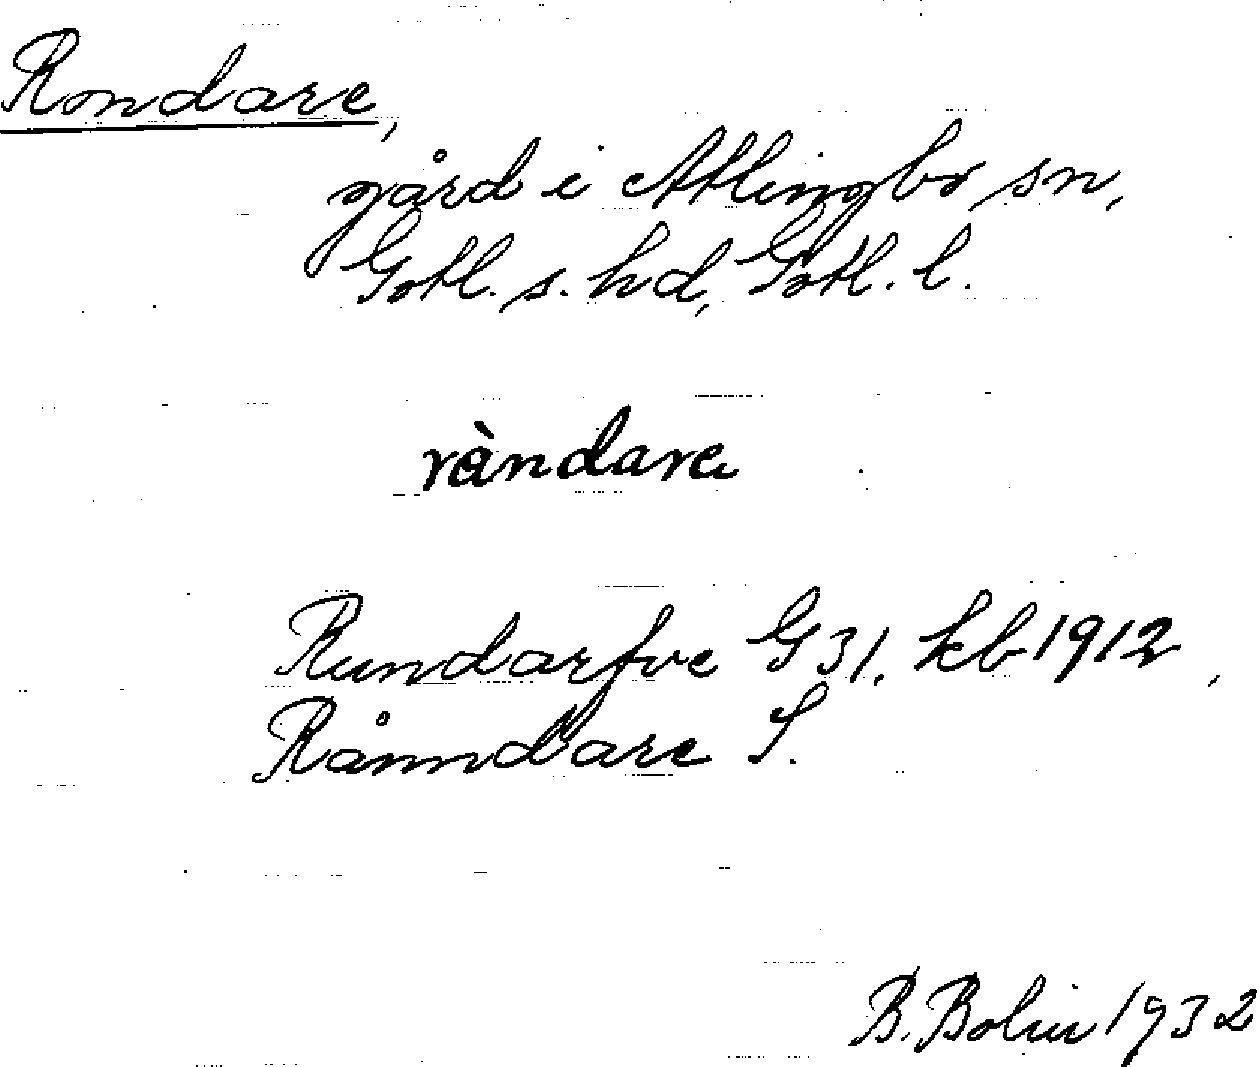 Rondare,
gård i Atlingbo sn,
Gotl. s. hd, Gotl. l.
ràndare
Rundarfve G 31, kb 1912,
Rånndare S.
B. Bolin 1932